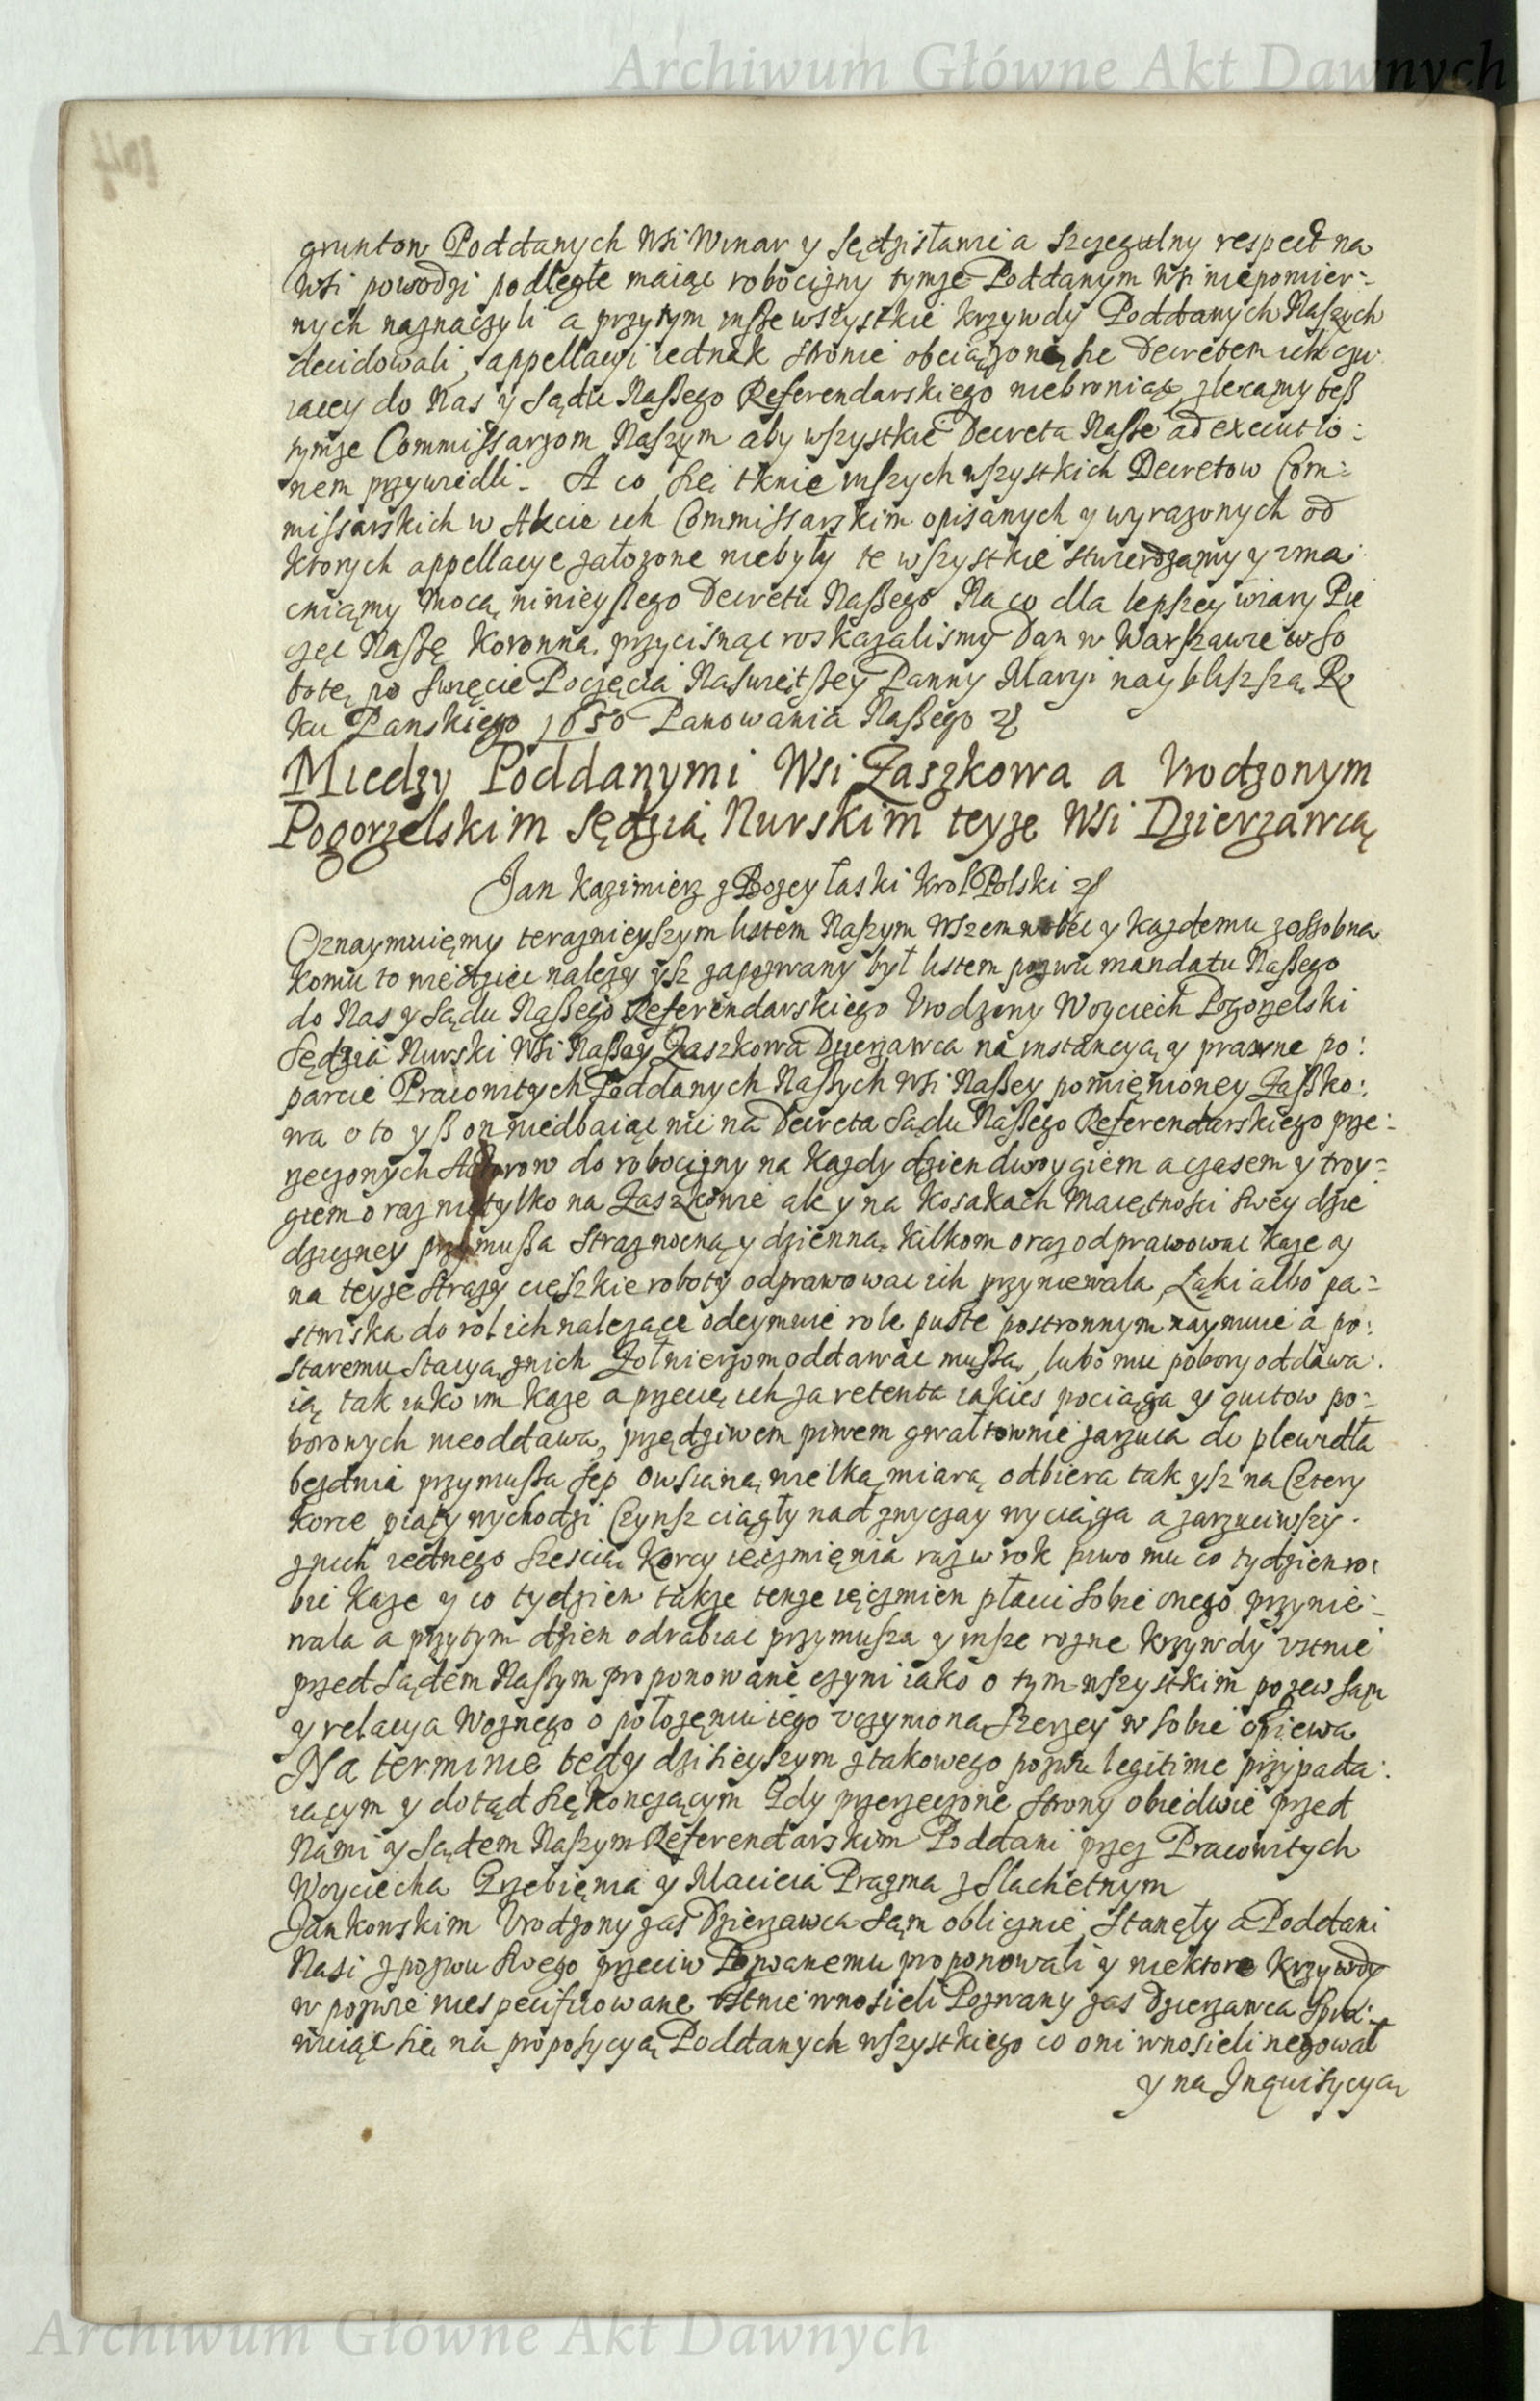 Archiwum Główne Akt Dawnych
104
gruntow Poddanych Wsi Winar y Sędzisławia szczegulny respect na
Wsi powodzi podległe maiąc robocizny tymze Poddanym Wsi niepomier-
nych naznaczyli a przytym insze wszystkie krzywdy Poddanych Naszych
decidowali, appellacyi iednak stronie obciązonę się Decretem ich czu
iącey do Nas y Sądu Naßego Referendarskiego niebroniąc, zlecamy teß
tymze Commissarzom Naszym aby wszystkie Decreta Naße ad executio:
nem przywiedli. A co się tknie inszych wszystkich Decretow Com:
missarskich w Akcie ich Commissarskim opisanych y wyrazonych od
ktorych appellacye załozone niebyły te wszystkie stwierdzamy y zma:
cniamy mocą ninieyßego Decretu Naßego Na co dla lepszey wiary Pie
częć Naßę Koronną przycisnąc roskazalismy Dan w Warszawie w So
botę po Swięcie Poczęcia Naswiętßey Panny Maryi naybliszszą Ro
ku Panskiego 1650 Panowania Naßego
Miedzy Poddanymi Wsi Zaszkowa a Vrodzonym
Pogorzelskim Sędzią Nurskim teyze Wsi Dzierzawcą
Jan Kazimierz z Bozey łaski Krol Polski
Oznaymuiemy terazniejszym listem Naszym Wszem wobec y kazdemu zossobna
komu to wiedziec nalezy ysz zapozwany był listem pozwu mandatu Naßego
do Nas y Sądu Naßego Referendarskiego Vrodzony Woyciech Pogorzelski
Sędzia Nurski Wsi Naßey Zaszkowa Dzierzawca na instancyą y prawne po:
parcie Pracowitych Poddanych Naßych Wsi Naßey pomięnioney Zaßko:
wa o to yß on niedbaiąc nic na Decreta Sądu Naßego Referendarskiego prze:
rzeczonych Aktorow do robocizny na kazdy dzien dwoygiem a czasem y troy-
giem oraz nietylko na Zaszkowie ale y na Kosakach Maiętnosci swey dzie
dziczney przymußa straz nocną y dzienną kilkom oraz odprawowac kaze y
na teyze strazy cięszkie roboty odprawowac ich przyniewala, Łąki albo pa-
stwiska do rol ich nalezące odeymuie role puste postronnym naymuie a po:
staremu stacyą z nich Zołnierzom oddawac mußą, lubo mu pobory oddawa:
ią tak iako im kaze a przecię ich za retenta iakies pociąga y quitow po-
borowych nieoddawa, przędziwem piwem gwałtownie zarzuca do plewidła
bezdnia przymußa sep owsianą wielką miarą odbiera tak ysz na Cztery
korce piąty wychodzi Czynsz ciągły nad zwyczay wyciąga a zarzuciwszy
z nich iednego szescią korcy ięczmięnia raz w rok piwo mu co tydzien ro:
bic kaze y co tydzien takze tenze ięczmien płaci sobie onego przynie-
wala a przytym dzien odrabiac przymusza y insze rozne krzywdy vstnie
przed Sądem Naßym proponowane czyni iako o tym wszystkim pozew sąm
y relacya Woznego o połozęniu iego vczyniona szerzey w sobie opiewa
Na terminie tedy dzisieyszym z takowego pozwu legitime przypada:
iącym y dotąd się konczącym Gdy przerzeczone strony obiedwie przed
Nami y Sądem Naszym Referendarskim Poddani przez Pracowitych
Woyciecha Grzebięnia y Macieia Pragma z Slachetnym
Jankowskim Vrodzony zas Dzierzawca sąm oblicznie stanęły a Poddani
Nasi z pozwu swego przeciw Pozwanemu proponowali y niektore krzywdy
w pozwie niespecifikowane vstnie wnosieli Pozwany zas Dzierzawca spra:
wuiąc się na proposycyą Poddanych wszystkiego co oni wnosieli negował
y na Inquisycyą
Archiwum Główne Akt Dawnych